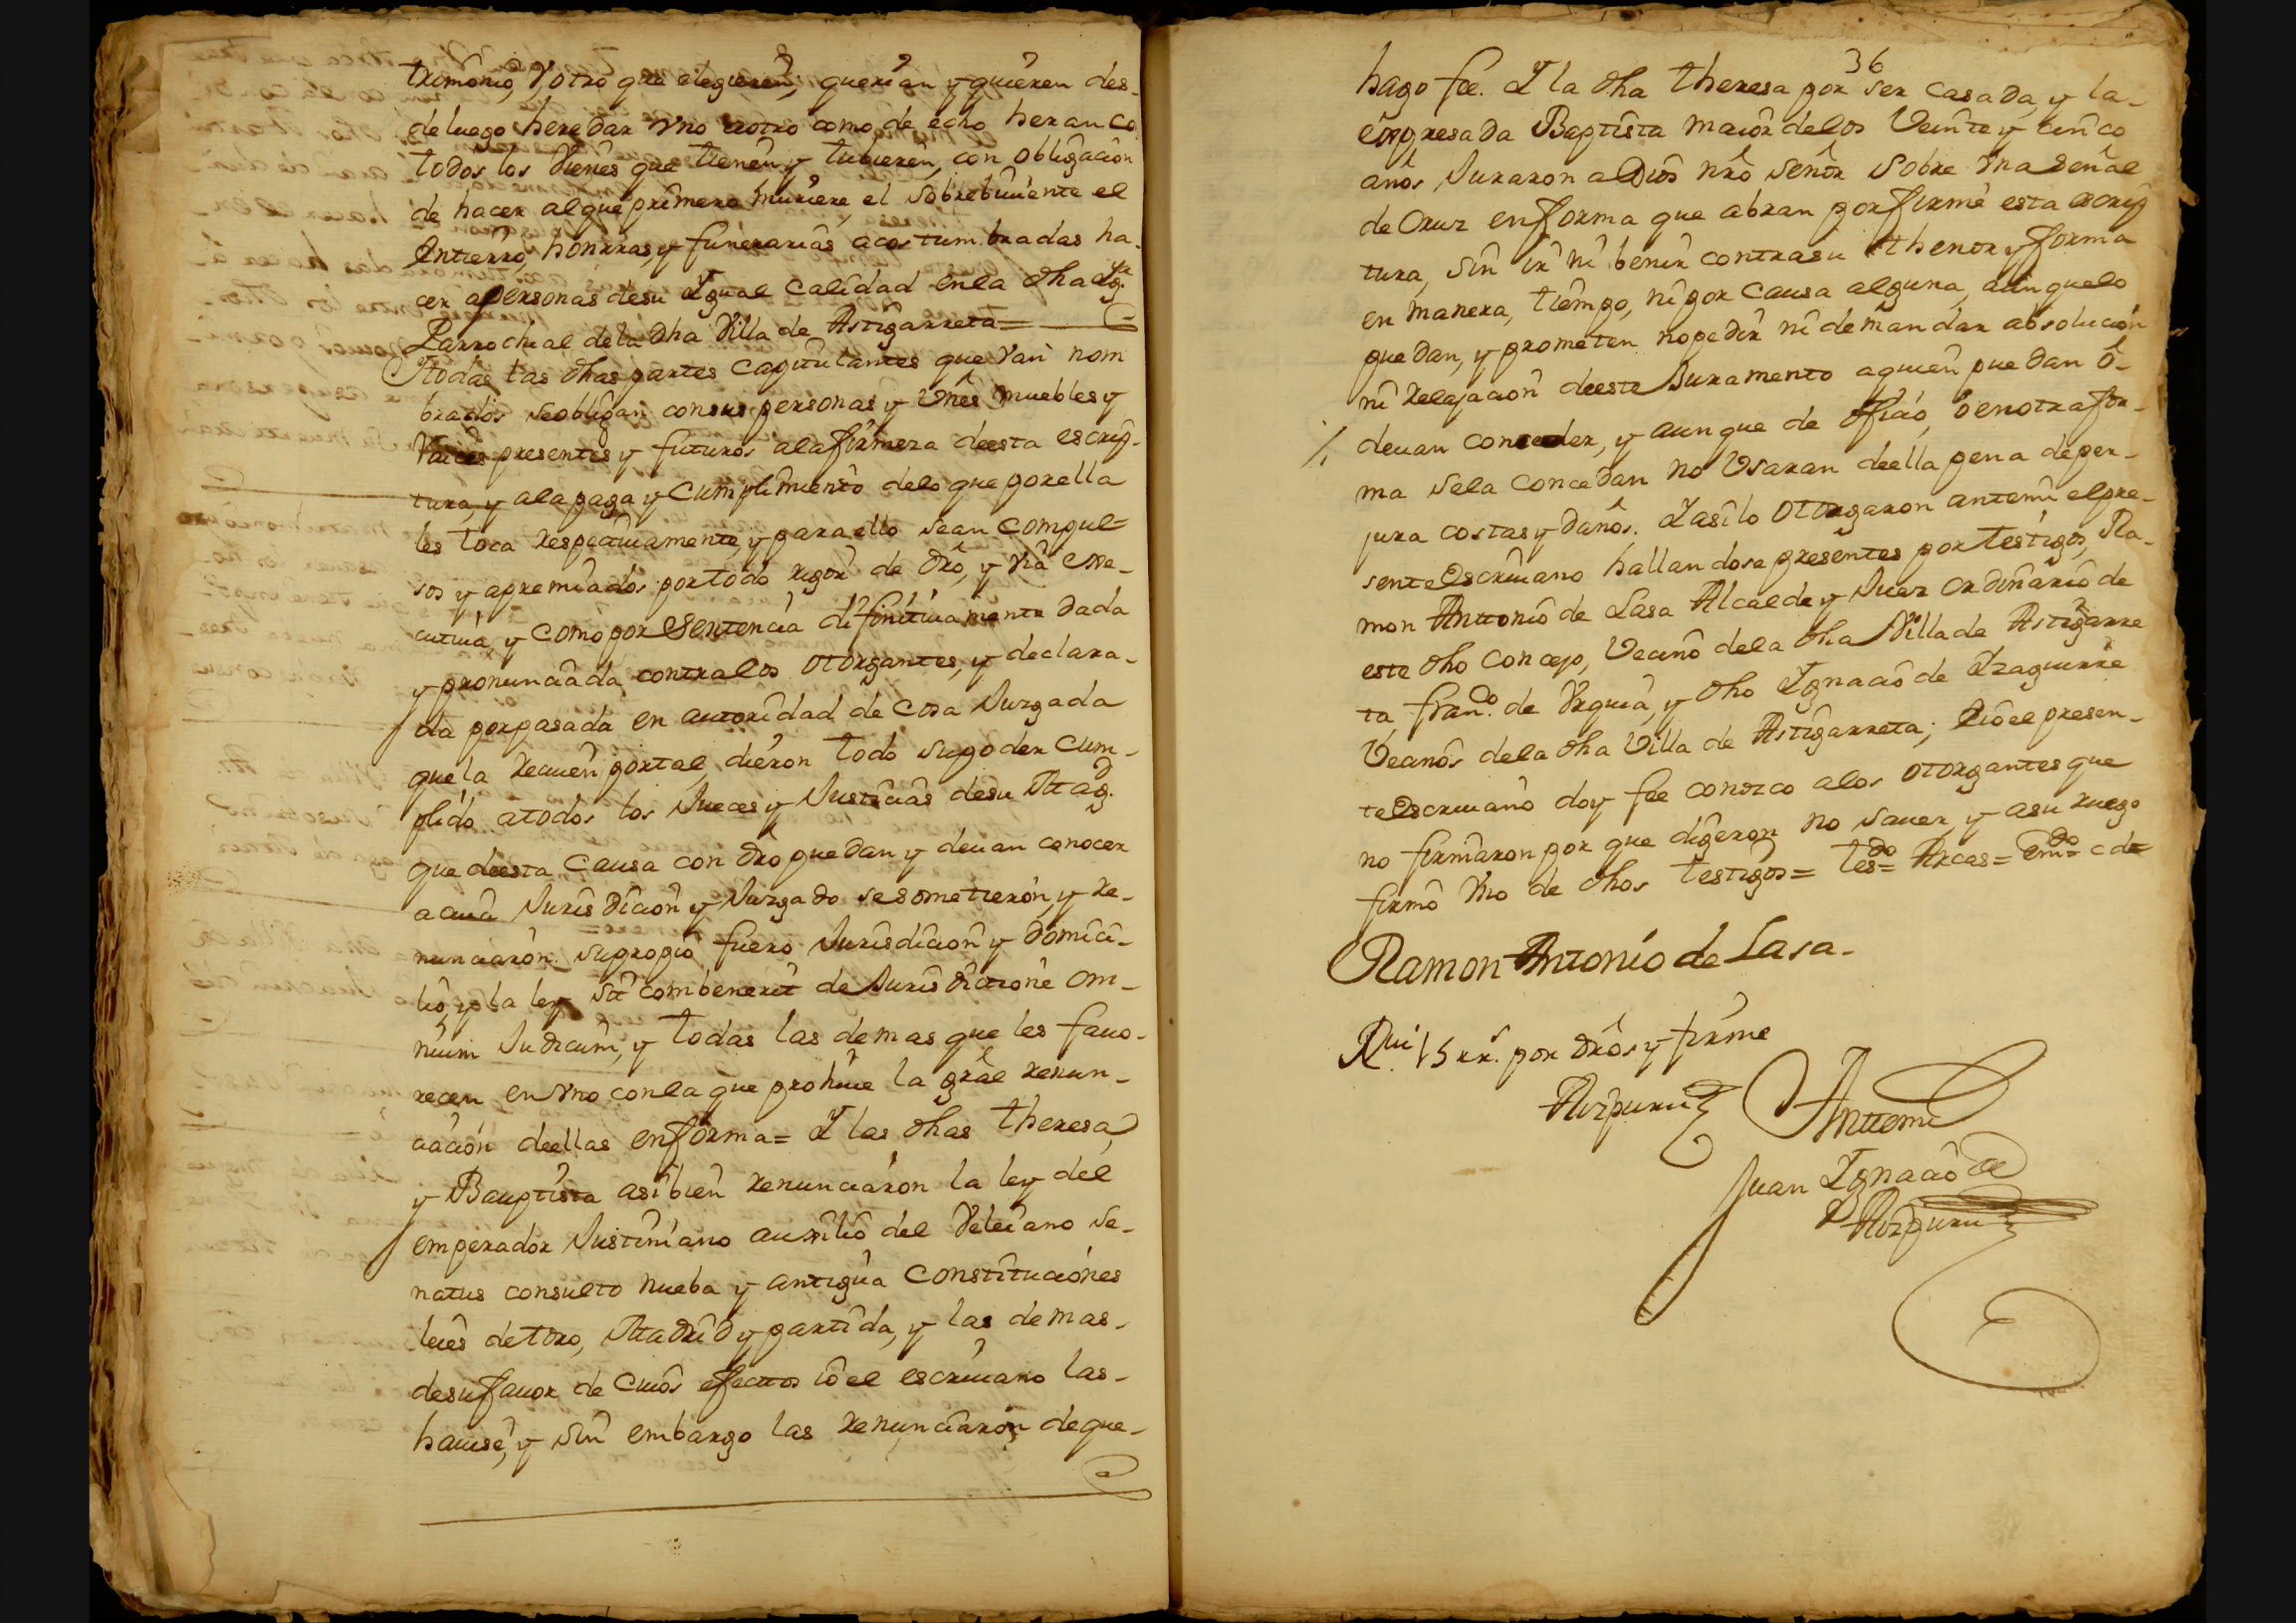 trimonio, Y otro que eligieren, querian y quieren des-
de luego heredar Vno aotro como de echo heran co
todos los Vienes que tienen y tubieren, con obligacion
de hacer alque primero muriere, el Sobrebiuiente el
Entierro, honrras, y funerarias acostumbradas ha-
cer apersonas desu Igual Calidad enla dha Ygª
Parrochial dela dha Villa de Astigarreta=
Ytodas las dhas partes Capitulantes que Van nom
brados seobligan consus personas y Vnēs muebles y
Raices presentes y futuros ala firmeza deesta escrip-
tura, y ala paga y Cumplimiento delo que por ella
les toca respectiuamente, y para ello sean Compul=
sos y apremiados por todo rigor de dro, y Via exe-
cutiua, y Como por Sentencia difinitiuamente dada
y pronunciada contra los otorgantes, y declara-
da por pasada en autoridad de Cosa Juzgada
que la reciuen por tal, dieron todo su poder Cum-
plido atodos los Jueces y Justicias desu Magd.
que deesta Causa con dro puedan y deuan conocer
acuia Jurisdicion y Juzgado sesometieron, y re-
nunciaron su propio fuero Jurisdicion y domici-
lio, y la ley Sit combenerit de Jurisdictione om-
nium Judicum, y todas las demas que les fauo-
recen en Vno conla que prohiue la gral renun-
ciacion deellas en forma= Y las dhas theresa
y Bauptista asibien renunciaron la ley del
emperador Justiniano auxilio del Veleiano se-
natus consulto nueba y antigua Constituciones
leies detoro, Madrid y partida, y las demas-
desu fauor de Cuios efectos io el escriuano las-
hauise, y sin embargo las renunciaron deque-
36
hago fee. Y la dha theresa por ser Casada, y la-
expresada Baptista maior delos Veinte y cinco
años Juraron a Dios nrō Señor Sobre Vna Señal
de Cruz enforma que abran por firme esta escrip
tura, sin ir ni benir contrasu thenor y forma
en manera, tiempo, ni por Causa alguna, aunquelo
puedan, y prometen nopedir ni demandar absolucion
ni relajacion deeste Juramento aquien puedan ó-
deuan conceder, y aunque de oficio, óenotrafor-
ma sela Concedan no Vsaran deella pena deper-
jura costas y daños. Y asilo otorgaron antemi elpre-
sente escriuano hallandose presentes por testigos, Ra-
mon Anttonio de Lasa Alcalde y Juez ordinario de
este dho Concejo, Vecino dela dha Villa de Astigarre
ta franco. de Vrquia, y dho Ignacio de Yzaguirre
Vecinos dela dha Villa de Astigarreta; Eioel presen-
te escriuano doy fee conozco alos otorgantes que
no firmaron por que digeron no sauer, y asu ruego
firmó Vno de dhos testigos= tesdo= Arcas= Emdo= cd=
Ramon Antonio de Lasa-
Rui 15 rr.s por drōs y firme
Aizpuru
Anttemi
Juan Ignacio de
Aizpuru